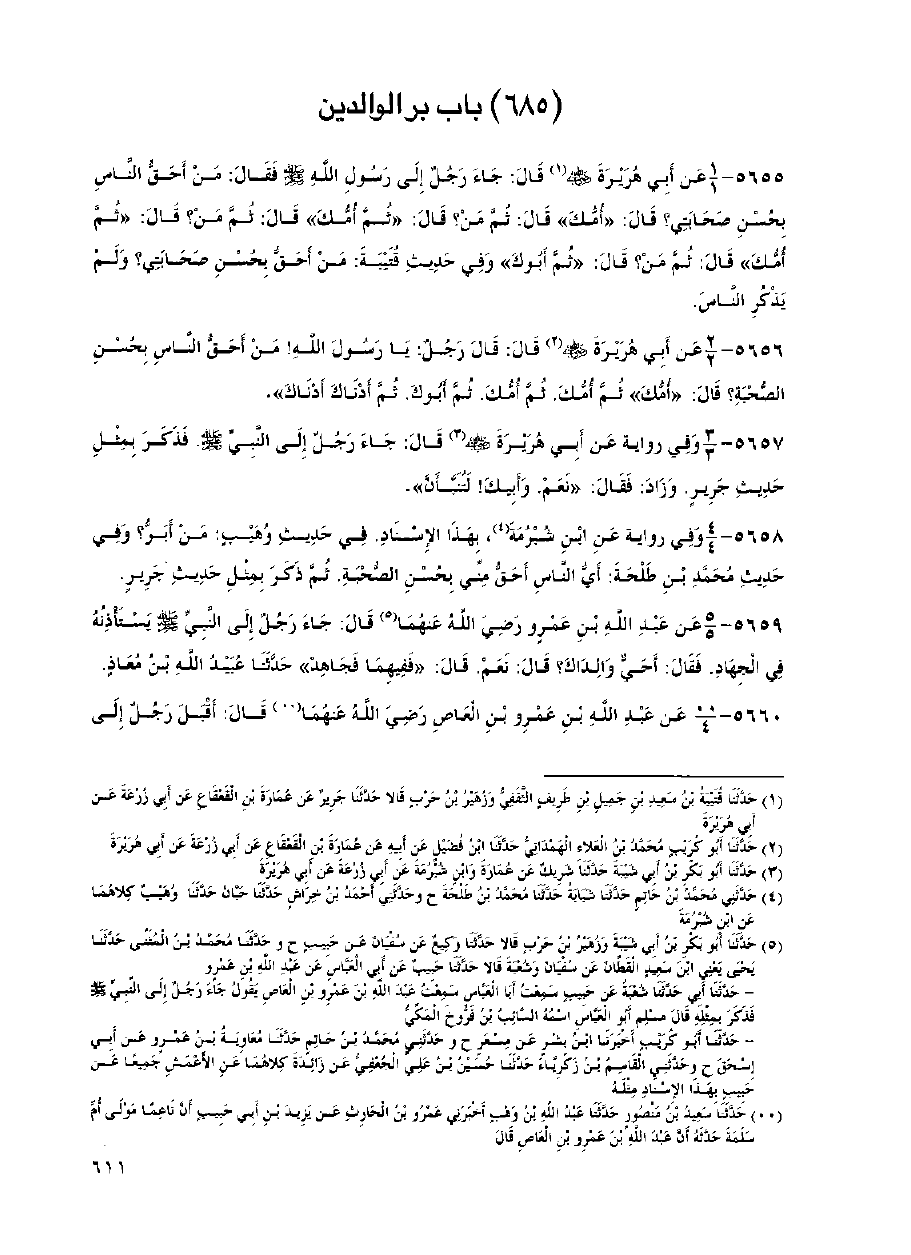 (٦٨٥) باب بر الوالدين
٥٦٥٥-١/١ عَن أَبِي هُرَيْرَةَ ﷺ(١) قَالَ: جَاءَ رَجُلٌ إِلَى رَسُولِ اللَّهِ ﷺ فَقَالَ: مَنْ أَحَقُّ النَّاسِ
بِحُسْنِ صَحَابَتِي؟ قَالَ: «أُمُّكَ» قَالَ: ثُمَّ مَنْ؟ قَالَ: «ثُمَّ أُمُّكَ» قَالَ: ثُمَّ مَنْ؟ قَالَ: «ثُمَّ
أُمُّكَ» قَالَ: ثُمَّ مَنْ؟ قَالَ: «ثُمَّ أَبُوكَ» وَفِي حَدِيثِ قُتَيْبَةَ: مَنْ أَحَقُّ بِحُسْنِ صَحَابَتِي؟ وَلَمْ
يَذْكُرِ النَّاسَ.
٥٦٥٦-٢/٢ عَن أَبِي هُرَيْرَةَ (٢) قَالَ: قَالَ رَجُلٌ: يَا رَسُولَ اللَّهِ! مَنْ أَحَقُّ النَّاسِ بِحُسْنِ
الصُّحْبَةِ؟ قَالَ: «أُمُّكَ» ثُمَّ أُمُّكَ. ثُمَّ أُمُّكَ. ثُمَّ أَبُوكَ. ثُمَّ أَدْنَاكَ أَدْنَاكَ».
٥٦٥٧-٣/٣ وَفِي رواية عَن أَبِي هُرَيْرَةَ (٣) قَالَ: جَاءَ رَجُلٌ إِلَى النَّبِيِّ ﷺ. فَذَكَرَ بِمِثْلِ
حَدِيثِ جَرِيرٍ. وَزَادَ: فَقَالَ: «نَعَمْ. وَأَبِيكَ! لَتُنَبَّأَنَّ».
٥٦٥٨-٤/٤ وَفِي رواية عَن ابْنِ شُبْرُمَةَ(٤)، بِهَذَا الإِسْنَادِ. فِي حَدِيثِ وُهَيْبٍ: مَنْ أَبَرُّ؟ وَفِي
حَدِيثِ مُحَمَّدِ بْنِ طَلْحَةَ: أَيُّ النَّاسِ أَحَقُّ مِنِّي بِحُسْنِ الصُّحْبَةِ. ثُمَّ ذَكَرَ بِمِثْلِ حَدِيثِ جَرِيرٍ.
٥٦٥٩-٥/٥ عَن عَبْدِ اللَّهِ بْنِ عَمْرٍو رَضِيَ اللَّهُ عَنهُمَا(٥) قَالَ: جَاءَ رَجُلٌ إِلَى النَّبِيِّ ﷺ يَسْتَأْذِنُهُ
فِي الْجِهَادِ. فَقَالَ: أَحَيٌّ وَالِدَاكَ؟ قَالَ: نَعَمْ. قَالَ: «فَفِيهِمَا فَجَاهِدْ» حَدَّثَنَا عُبَيْدُ اللَّهِ بْنُ مُعَاذٍ.
٥٦٦٠- عَن عَبْدِ اللَّهِ بْنِ عَمْرِو بْنِ الْعَاصِ رَضِيَ اللَّهُ عَنهُمَا(٠٠) قَالَ: أَقْبَلَ رَجُلٌ إِلَى
(١) حَدَّثَنَا قُتَيْبَةُ بْنُ سَعِيدِ بْنِ جَمِيلِ بْنِ طَرِيفٍ الثَّقَفِيُّ وَزُهَيْرُ بْنُ حَرْبٍ قَالا حَدَّثَنَا جَرِيرٌ عَن عُمَارَةَ بْنِ الْقَعْقَاعِ عَن أَبِي زُرْعَةَ عَن
أَبِي هُرَيْرَةَ
(٢) حَدَّثَنَا أَبُو كُرَيْبٍ مُحَمَّدُ بْنُ الْعَلاءِ الْهَمْدَانِيُّ حَدَّثَنَا ابْنُ فُضَيْلٍ عَن أَبِيهِ عَن عُمَارَةَ بْنِ الْقَعْقَاعِ عَن أَبِي زُرْعَةَ عَن أَبِي هُرَيْرَةَ
(٣) حَدَّثَنَا أَبُو بَكْرِ بْنُ أَبِي شَيْبَةَ حَدَّثَنَا شَرِيكٌ عَن عُمَارَةَ وَابْنِ شُبْرُمَةَ عَن أَبِي زُرْعَةَ عَن أَبِي هُرَيْرَةَ
(٤) حَدَّثَنِي مُحَمَّدُ بْنُ حَاتِمٍ حَدَّثَنَا شَبَابَةُ حَدَّثَنَا مُحَمَّدُ بْنُ طَلْحَةَ ح و حَدَّثَنِي أَحْمَدُ بْنُ خِرَاشٍ حَدَّثَنَا حَبَّانُ حَدَّثَنَا وُهَيْبٌ كِلاهُمَا
عَن ابْنِ شُبْرُمَةَ
(٥) حَدَّثَنَا أَبُو بَكْرِ بْنُ أَبِي شَيْبَةَ وَزُهَيْرُ بْنُ حَرْبٍ قَالا حَدَّثَنَا وَكِيعٌ عَن سُفْيَانَ عَن حَبِيبٍ ح و حَدَّثَنَا مُحَمَّدُ بْنُ الْمُثَنَّى حَدَّثَنَا
يَحْيَى يَعْنِي ابْنَ سَعِيدٍ الْقَطَّانَ عَن سُفْيَانَ وَشُعْبَةَ قَالا حَدَّثَنَا حَبِيبٌ عَن أَبِي الْعَبَّاسِ عَن عَبْدِ اللَّهِ بْنِ عَمْرٍو
- حَدَّثَنَا أَبِي حَدَّثَنَا شُعْبَةُ عَن حَبِيبٍ سَمِعْتُ أَبَا الْعَبَّاسِ سَمِعْتُ عَبْدَ اللَّهِ بْنَ عَمْرِو بْنِ الْعَاصِ يَقُولُ جَاءَ رَجُلٌ إِلَى النَّبِيِّ ﷺ
فَذَكَرَ بِمِثْلِهِ قَالَ مسلِم أَبُو الْعَبَّاسِ اسْمُهُ السَّائِبُ بْنُ فَرُّوخَ الْمَكِّيُّ
- حَدَّثَنَا أَبُو كُرَيْبٍ أَخْبَرَنَا ابْنُ بِشْرٍ عَن مِسْعَرٍ ح و حَدَّثَنِي مُحَمَّدُ بْنُ حَاتِمٍ حَدَّثَنَا مُعَاوِيَةُ بْنُ عَمْرٍو عَن أَبِي
إِسْحَقَ ح و حَدَّثَنِي الْقَاسِمُ بْنُ زَكَرِيَّاءَ حَدَّثَنَا حُسَيْنُ بْنُ عَلِيٍّ الْجُعْفِيُّ عَن زَائِدَةَ كِلاهُمَا عَن الأَعْمَشِ جَمِيعًا عَن
حَبِيبٍ بِهَذَا الإِسْنَادِ مِثْلَهُ
(٠٠) حَدَّثَنَا سَعِيدُ بْنُ مَنْصُورٍ حَدَّثَنَا عَبْدُ اللَّهِ بْنُ وَهْبٍ أَخْبَرَنِي عَمْرُو بْنُ الْحَارِثِ عَن يَزِيدَ بْنِ أَبِي حَبِيبٍ أَنَّ نَاعِمًا مَوْلَى أُمِّ
سَلَمَةَ حَدَّثَهُ أَنَّ عَبْدَ اللَّهِ بْنَ عَمْرِو بْنِ الْعَاصِ قَالَ
٦١١